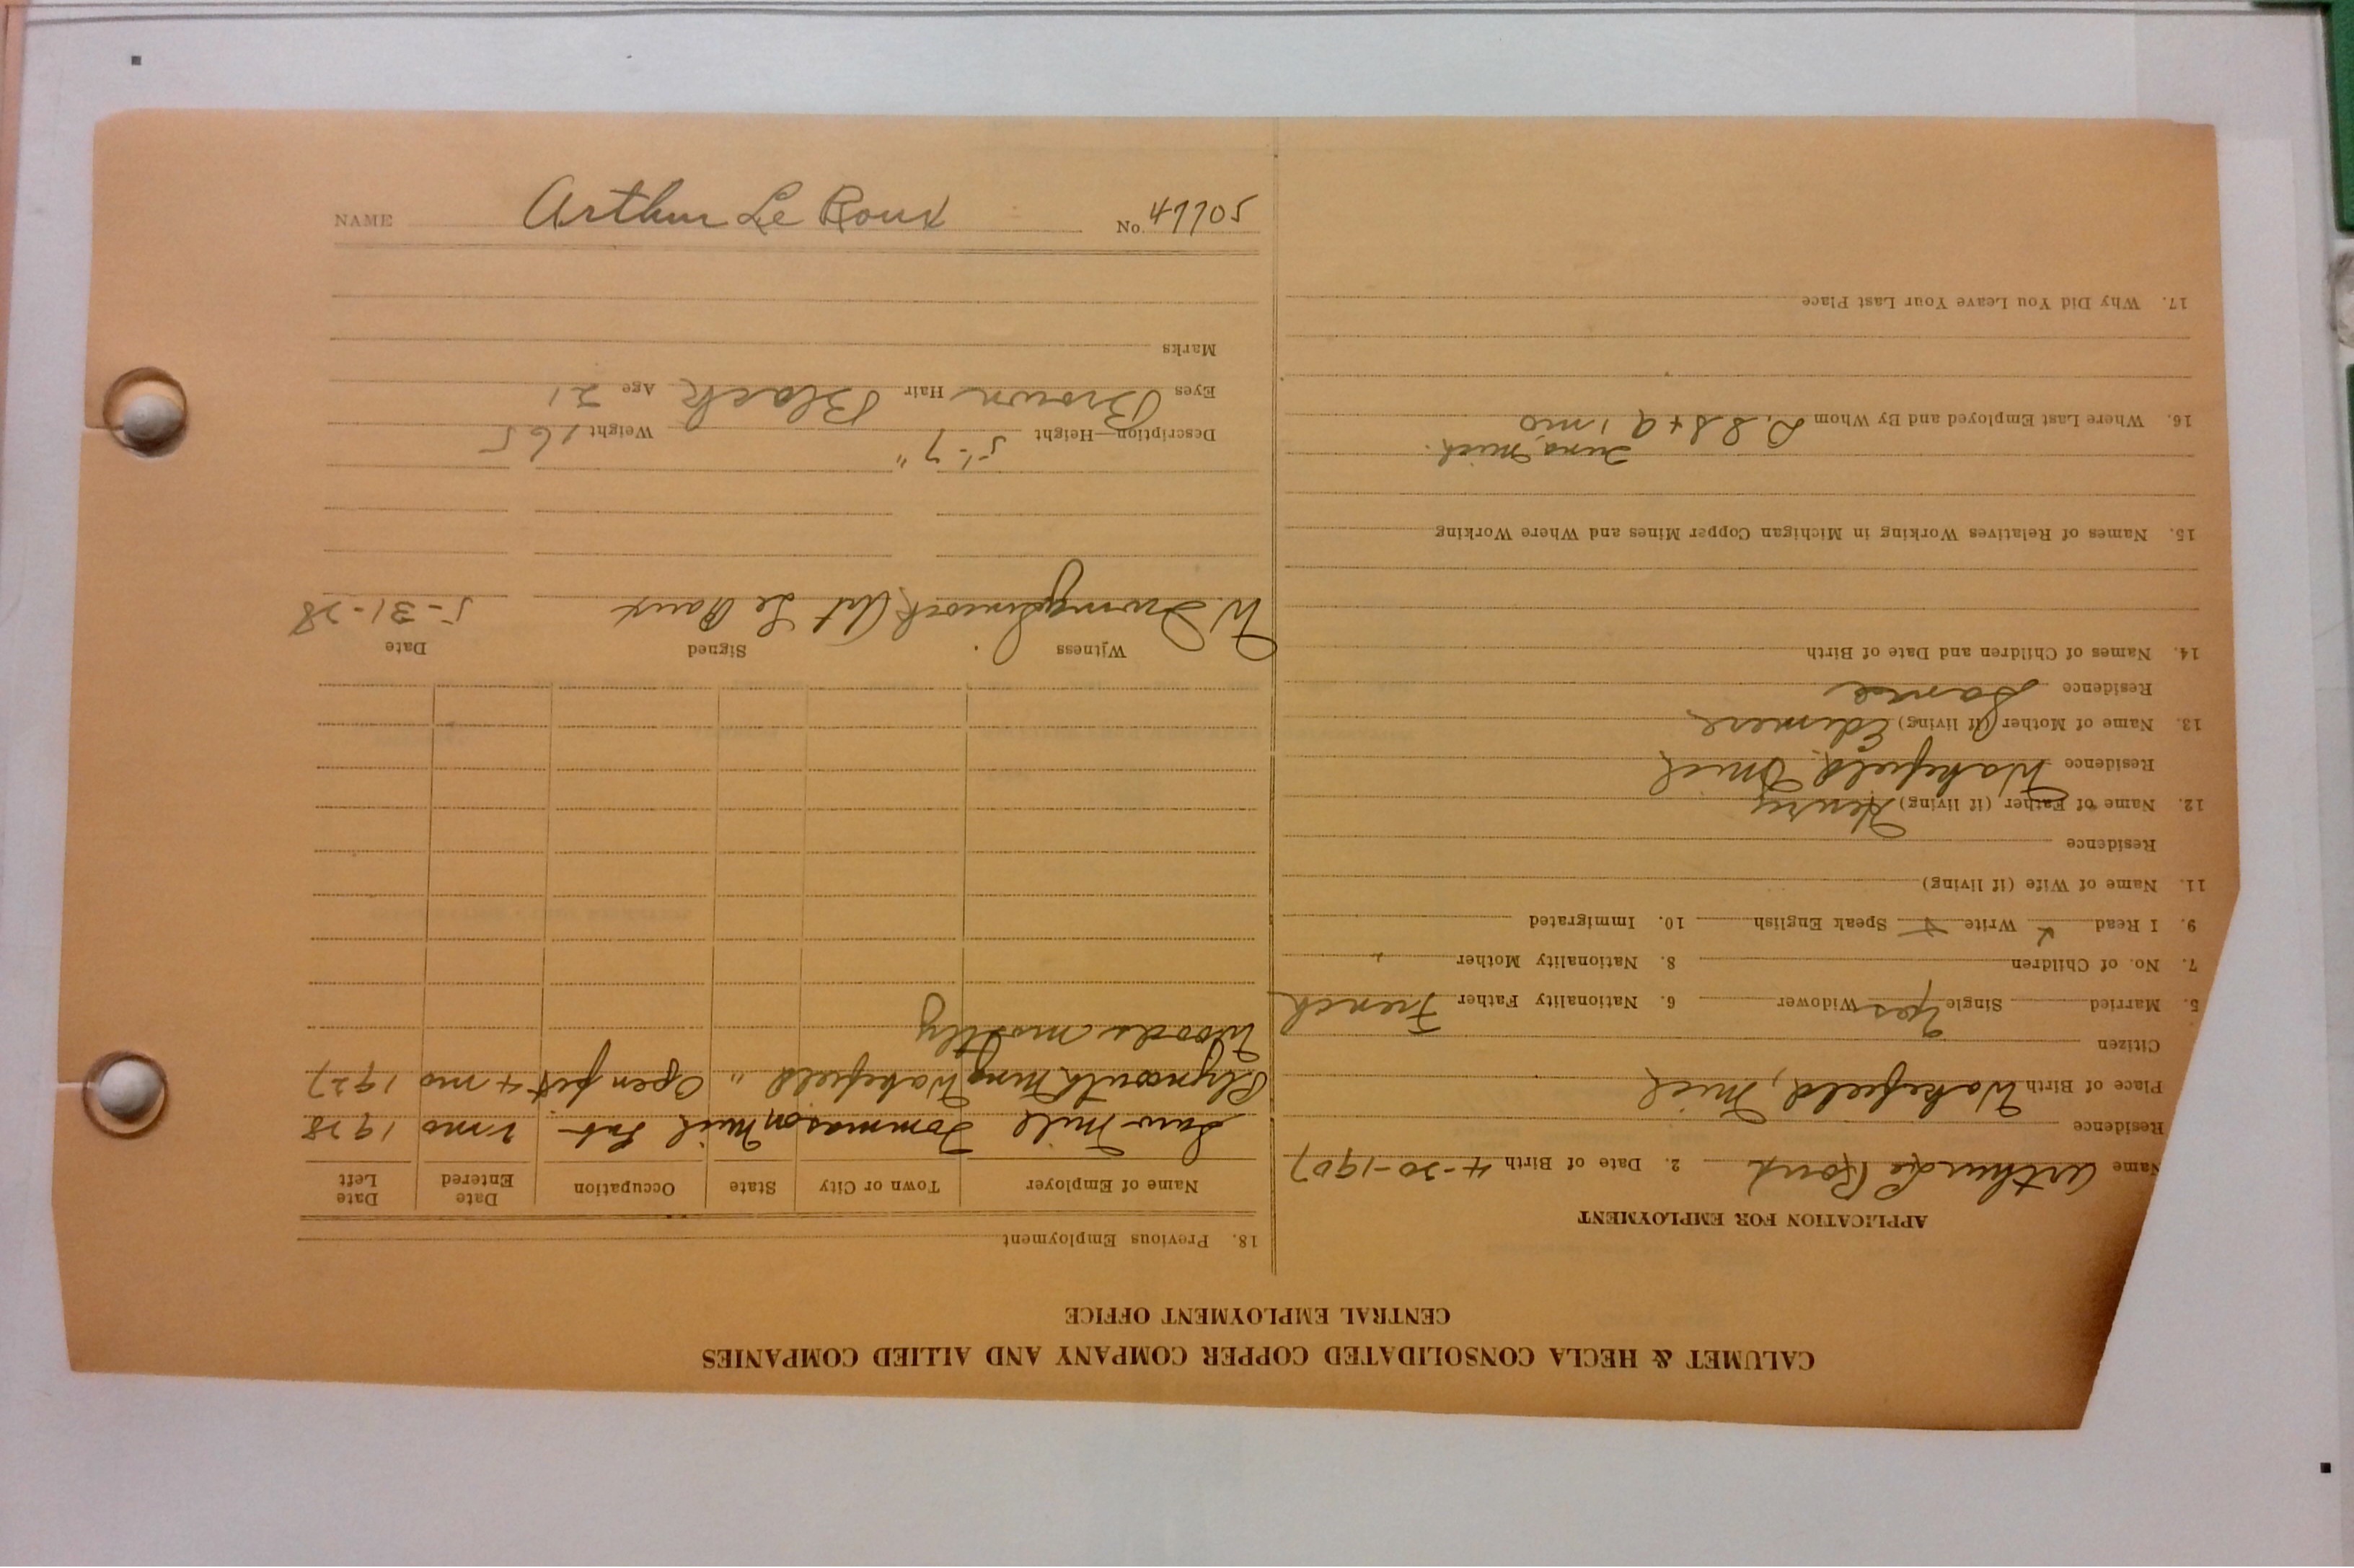 NAME Arthur Le Roux No. 47705
CALUMET & HECLA CONSOLIDATED COPPER COMPANY AND ALLIED COMPANIES
CENTRAL EMPLOYMENT OFFICE
APPLICATION FOR EMPLOYMENT
Name Arthur Le Roux 2. Date of Birth 4-20-1907
Residence
Place of Birth Wakefield, Mich
Citizen
5. Married Single Yes Widower 6. Nationality Father French
7. No. of Children 8. Nationality Mother "
9. I Read Write Speak English 10. Immigrated
11. Name of Wife (if living)
Residence
12. Name of Father (if living) Henry
Residence Wakefield Mich
13. Name of Mother (if living)
Residence Same
14. Names of Children and Date of Birth
15. Names of Relatives Working in Michigan Copper Mines and Where Working
16. Where Last Employed and By Whom D. S S + A 1 mo
Mich.
17. Why Did You Leave Your Last Place
18. Previous Employment
Name of Employer Town or City State Occupation Date Entered Date Left
Saw Mill Mich Lab 2 mo 1928
Plymouth Mng Wakefield " Open pit 4 mo 1927
Woods mostly
Witness Signed Date
W. Art Le Roux 5-31-28
Description—Height 5'-7" Weight 165
Eyes Brown Hair Black Age 21
Marks